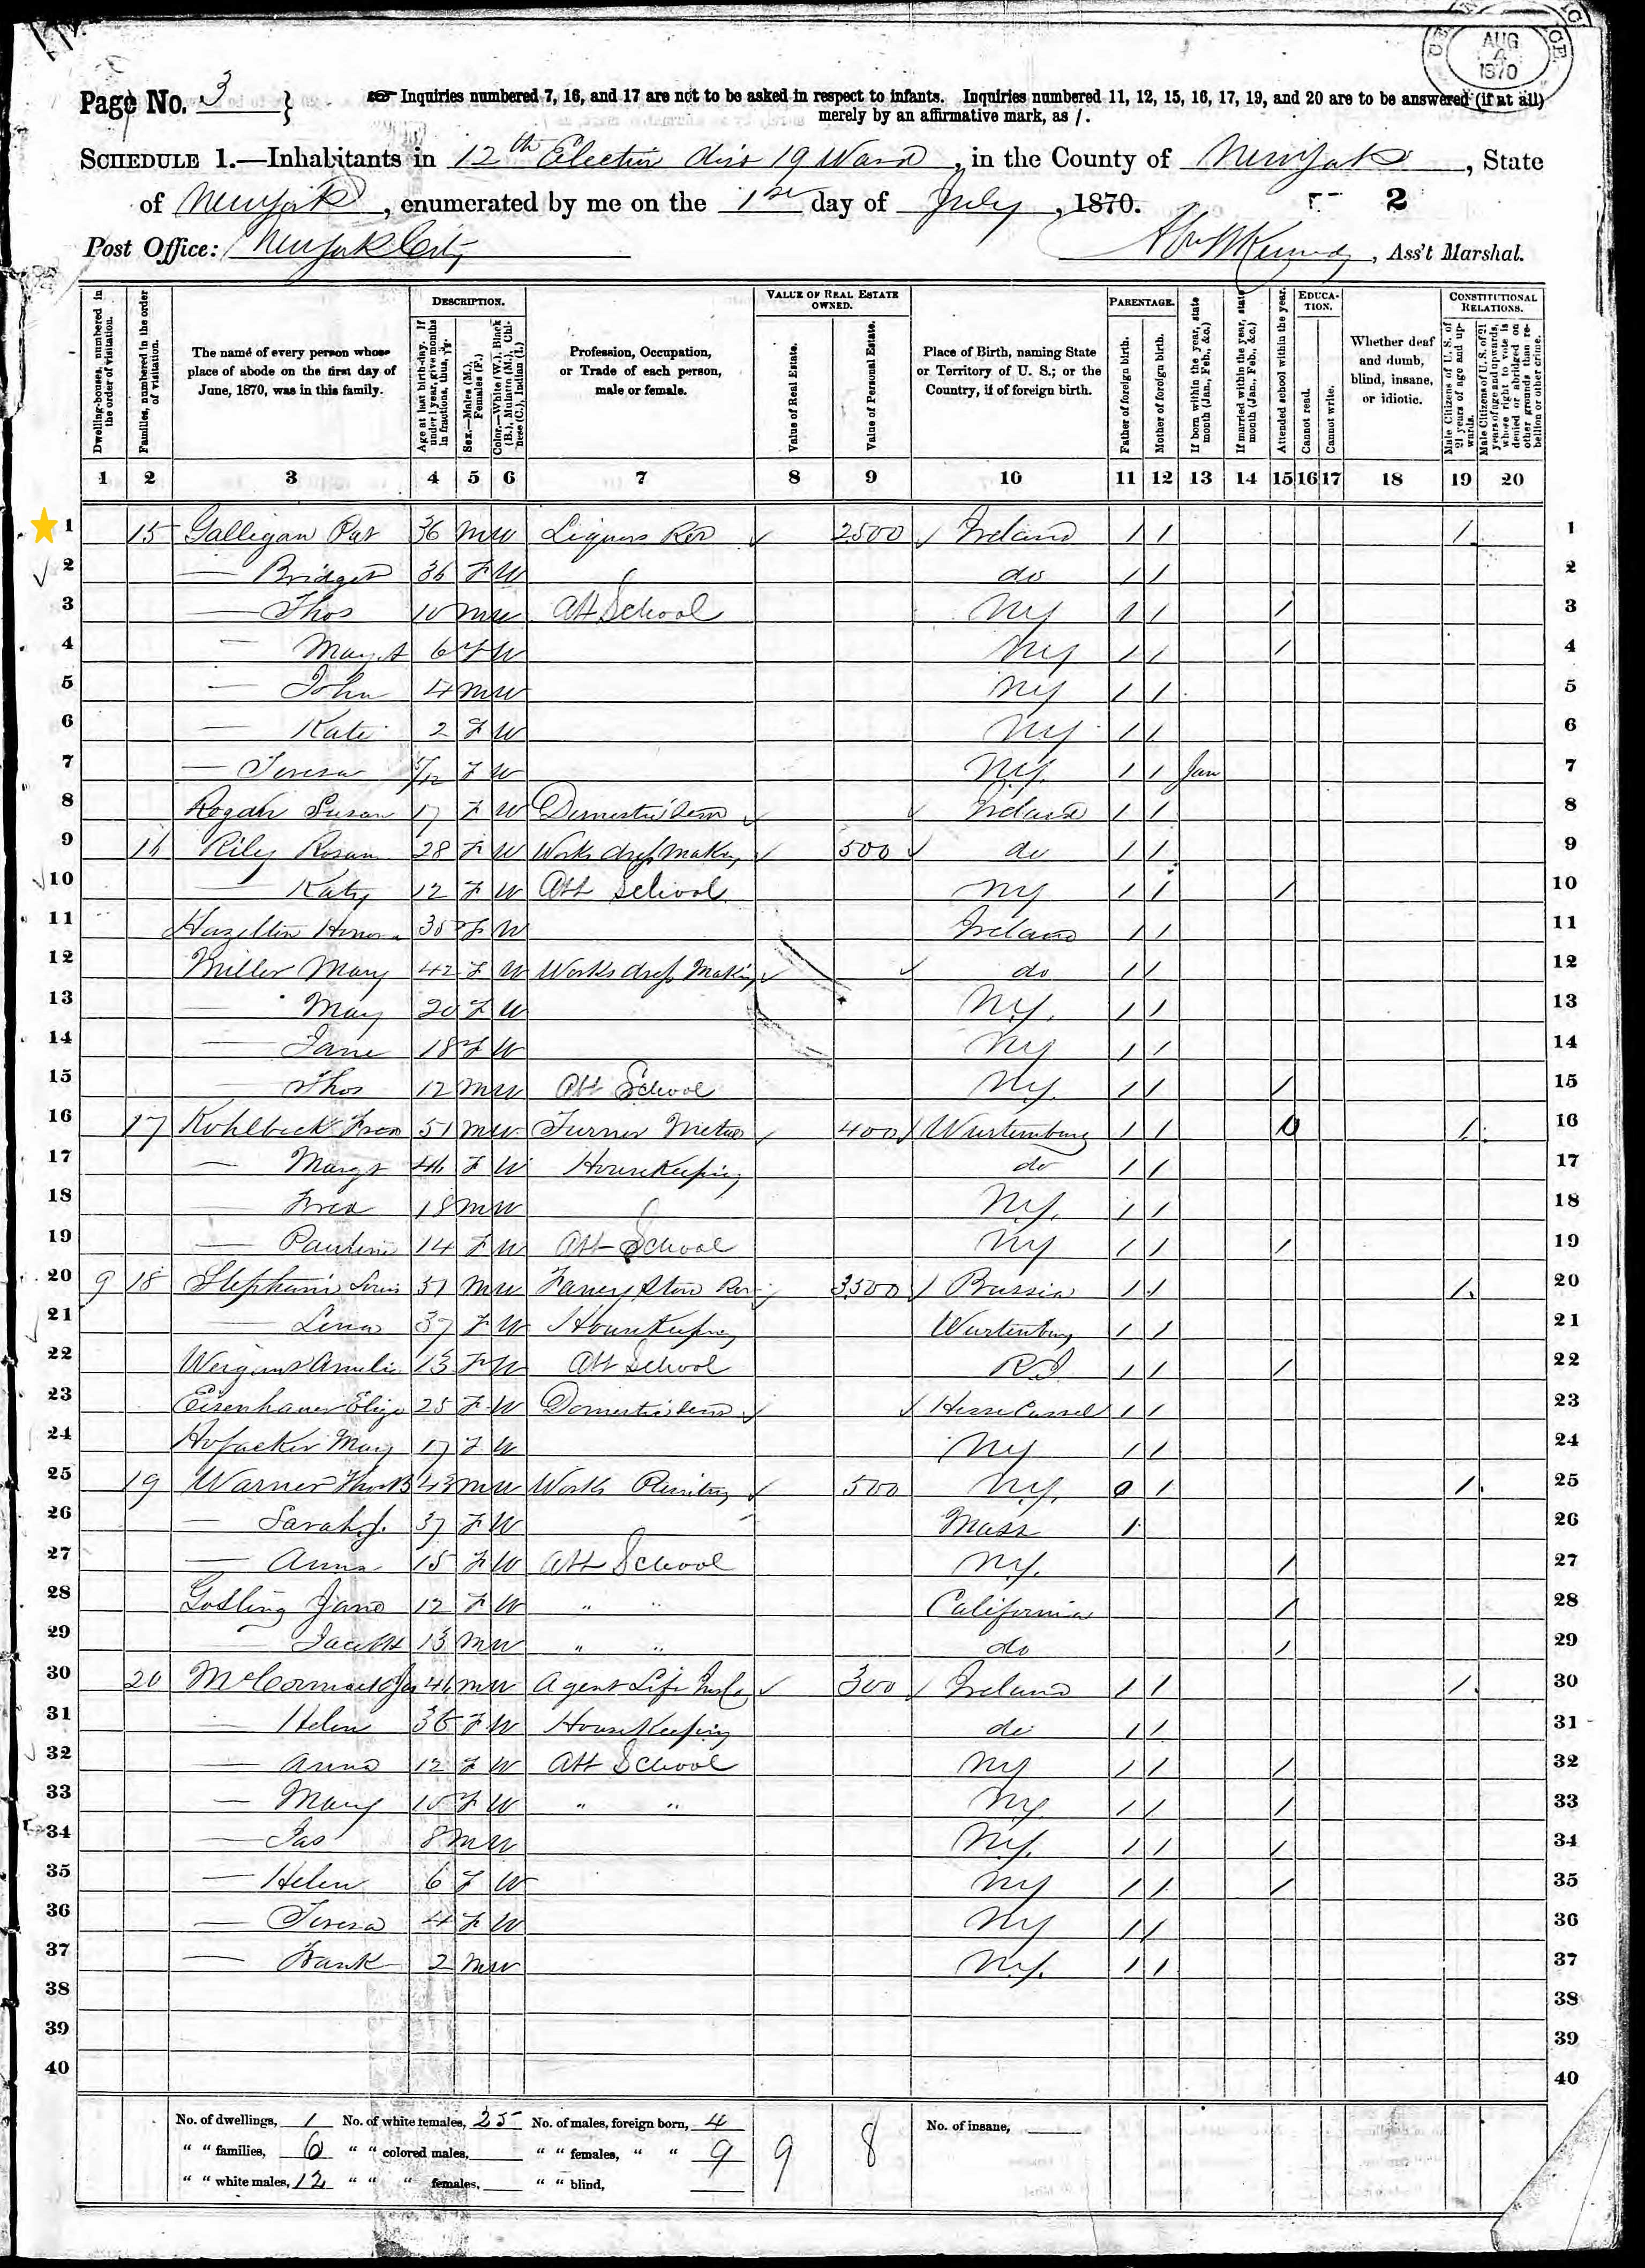 AUG
4
1870
Page No. 3 } Inquiries numbered 7, 16, and 17 are not to be asked in respect to infants. Inquiries numbered 11, 12, 15, 16, 17, 19, and 20 are to be answered (if at all)
merely by an affirmative mark, as /.
SCHEDULE 1.—Inhabitants in 12th Election dis 19 Ward, in the County of New York, State
of New York, enumerated by me on the 1st day of July, 1870. 2
Post Office: New York City , Ass't Marshal.
Dwelling-houses, numbered in the order of visitation.
Families, numbered in the order of visitation.
The name of every person whose place of abode on the first day of June, 1870, was in this family.
DESCRIPTION.
Age at last birth-day. If under 1 year, give months in fractions, thus, 3/12.
Sex.—Males (M.), Females (F.)
Color.—White (W.), Black (B.), Mulatto (M.), Chinese (C.), Indian (I.)
Profession, Occupation, or Trade of each person, male or female.
VALUE OF REAL ESTATE OWNED.
Value of Real Estate.
Value of Personal Estate.
Place of Birth, naming State or Territory of U. S.; or the Country, if of foreign birth.
PARENTAGE.
Father of foreign birth.
Mother of foreign birth.
If born within the year, state month (Jan., Feb., &c.)
If married within the year, state month (Jan., Feb., &c.)
Attended school within the year.
EDUCATION.
Cannot read.
Cannot write.
Whether deaf and dumb, blind, insane, or idiotic.
CONSTITUTIONAL RELATIONS.
Male Citizens of U. S. of 21 years of age and upwards.
Male Citizens of U. S. of 21 years of age and upwards, whose right to vote is denied or abridged on other grounds than rebellion or other crime.
1 2 3 4 5 6 7 8 9 10 11 12 13 14 15 16 17 18 19 20
1 15 Galligan Pat 36 M W Liquors 2500 Ireland / / / 1
2 — Bridget 36 F W do / / 2
3 — Thos 10 M W Att School NY / / / 3
4 — Margt 6 F W NY / / / 4
5 — John 4 M W NY / / 5
6 — Kate 2 F W NY / / 6
7 — Teresa 5/12 F W NY / / Jan 7
8 Rogan Susan 17 F W Domestic Serv Ireland / / 8
9 16 Rily Rosan 28 F W Works dress Making 500 do / / 9
10 — Katy 12 F W Att School NY / / / 10
11 Hazelton Honora 35 F W Ireland / / 11
12 Miller Mary 42 F W Works dress Making do / / 12
13 — Mary 20 F W NY / / 13
14 — Jane 18 F W NY / / 14
15 — Thos 12 M W Att School NY / / / 15
16 17 Kohlbeck Fred 51 M W Turner Metal 400 Wurtemburg / / / 16
17 — Margt 46 F W HouseKeeping do / / 17
18 — Fred 18 M W NY / / 18
19 — Pauline 14 F W Att School NY / / / 19
20 9 18 Stephani Louis 51 M W Fancy Store 3500 Prussia / / / 20
21 — Lina 37 F W HouseKeeping Wurtemburg / / 21
22 Amelia 13 F W Att School R.I. / / / 22
23 Eisenhauer Eliza 25 F W Domestic Serv Hesse Cassel / / 23
24 Hofacker Mary 17 F W NY / / 24
25 19 Warner Thos B 43 M W Works 500 NY 0 / / 25
26 — Sarah J. 37 F W Mass / 26
27 — Anna 15 F W Att School NY / 27
28 Gosling Jane 12 F W " " California / 28
29 — 13 M W " " do / 29
30 20 McCormack Jas 46 M W Agent Life Ins Co 300 Ireland / / / 30
31 — Helen 36 F W HouseKeeping do / / 31
32 — Anna 12 F W Att School NY / / / 32
33 — Mary 10 F W " " NY / / / 33
34 — Jas 8 M W NY / / / 34
35 — Helen 6 F W NY / / / 35
36 — Teresa 4 F W NY / / 36
37 — Frank 2 M W NY / / 37
38 38
39 39
40 40
No. of dwellings, 1 No. of white females, 25 No. of males, foreign born, 4 No. of insane,
" " families, 6 " " colored males, " " females, " " 9 9 8
" " white males, 12 " " " females, " " blind,